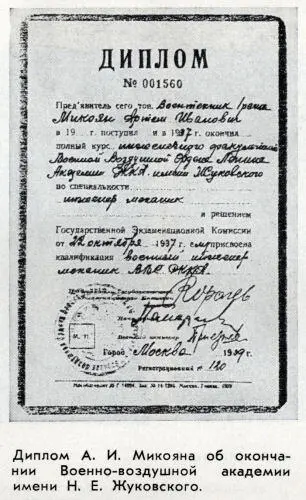 ДИПЛОМ
№ 001560
Пред'явитель сего тов. Воентехник I ранга
Микоян Артем Иванович
в 19 г. поступил и в 1937 г. окончил
полный курс инженерного факультета
Военной Воздушной Ордена Ленина
Академии РККА имени Жуковского
по специальности
инженер механик
и решением
Государственной Экзаменационной Комиссии
от 22 октября 1937 г. ему присвоена
квалификация военный инженер
механик ВВС РККА.
М. П.
Город Москва 1939 г.
Регистрационный № 120
Диплом А. И. Микояна об оконча-
нии Военно-воздушной академии
имени Н. Е. Жуковского.